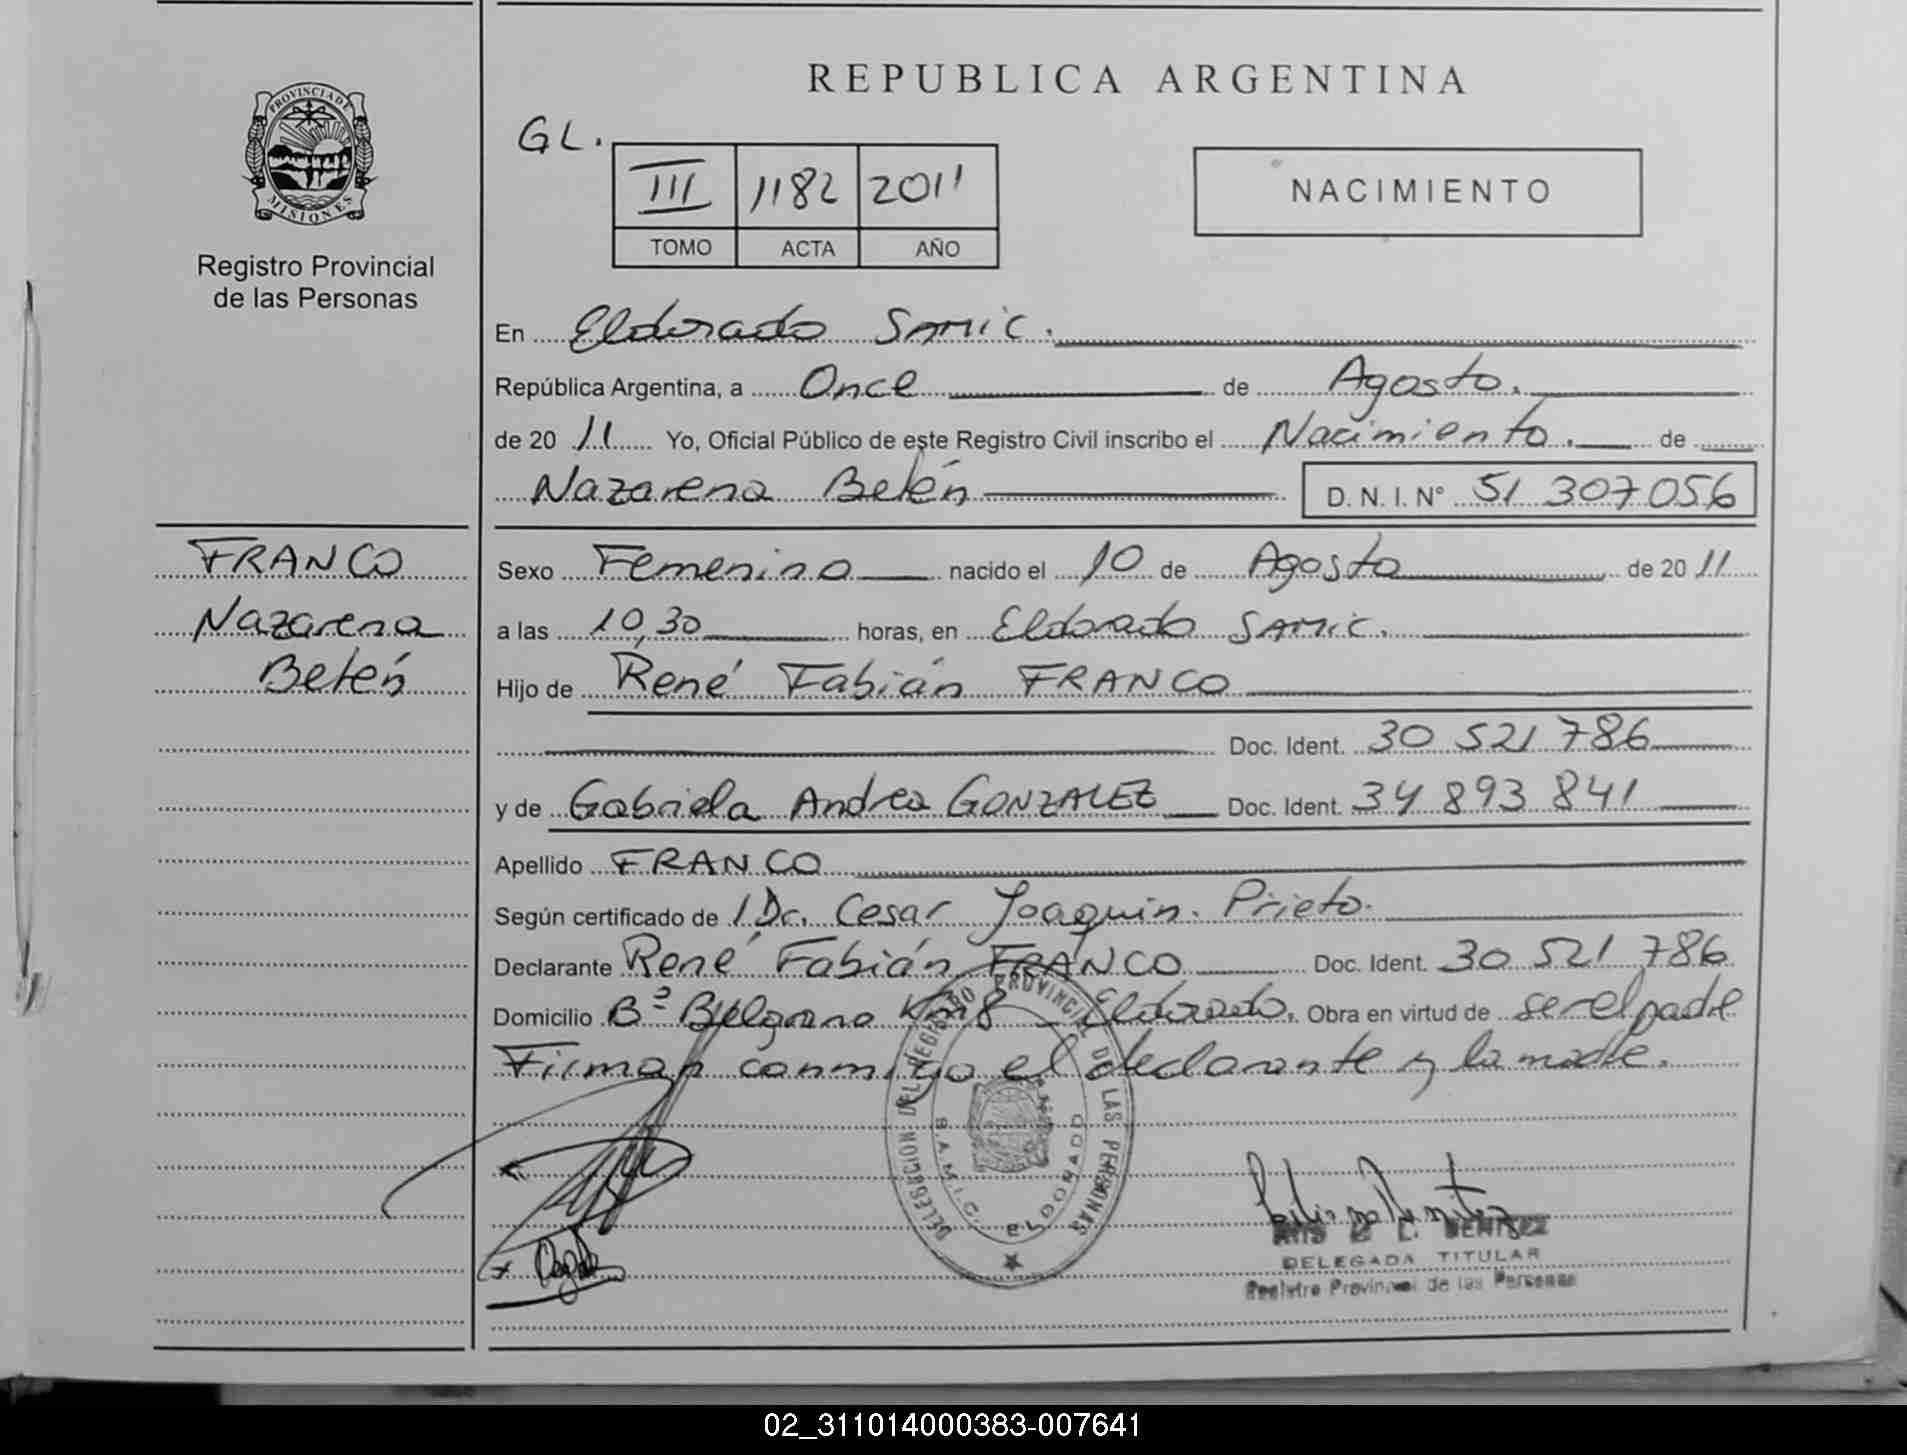 REPUBLICA ARGENTINA
PROVINCIA DE
MISIONES
Registro Provincial
de las Personas
GL.
III 1182 2011
TOMO ACTA AÑO
NACIMIENTO
En Eldorado SAMIC.
República Argentina, a Once de Agosto.
de 20 11 Yo, Oficial Público de este Registro Civil inscribo el Nacimiento. de
Nazarena Belén D. N. I. Nº 51 307056
FRANCO
Nazarena
Belén
Sexo Femenino nacido el 10 de Agosto de 20 11
a las 10,30 horas, en Eldorado SAMIC.
Hijo de René Fabián FRANCO
Doc. Ident. 30 521 786
y de Gabriela Andrea GONZALEZ Doc. Ident. 34 893 841
Apellido FRANCO
Según certificado de 1 Dr. Cesar Joaquin Prieto.
Declarante René Fabián FRANCO Doc. Ident. 30 521 786
Domicilio Bº Belgrano Km 8 Eldorado. Obra en virtud de ser el padre
Firman conmigo el declarante y la madre.
DELEGACION DEL REGISTRO PROVINCIAL DE LAS PERSONAS
S.A.M.I.C. ELDORADO
BENITEZ
DELEGADA TITULAR
Registro Provincial de las Personas
02_311014000383-007641